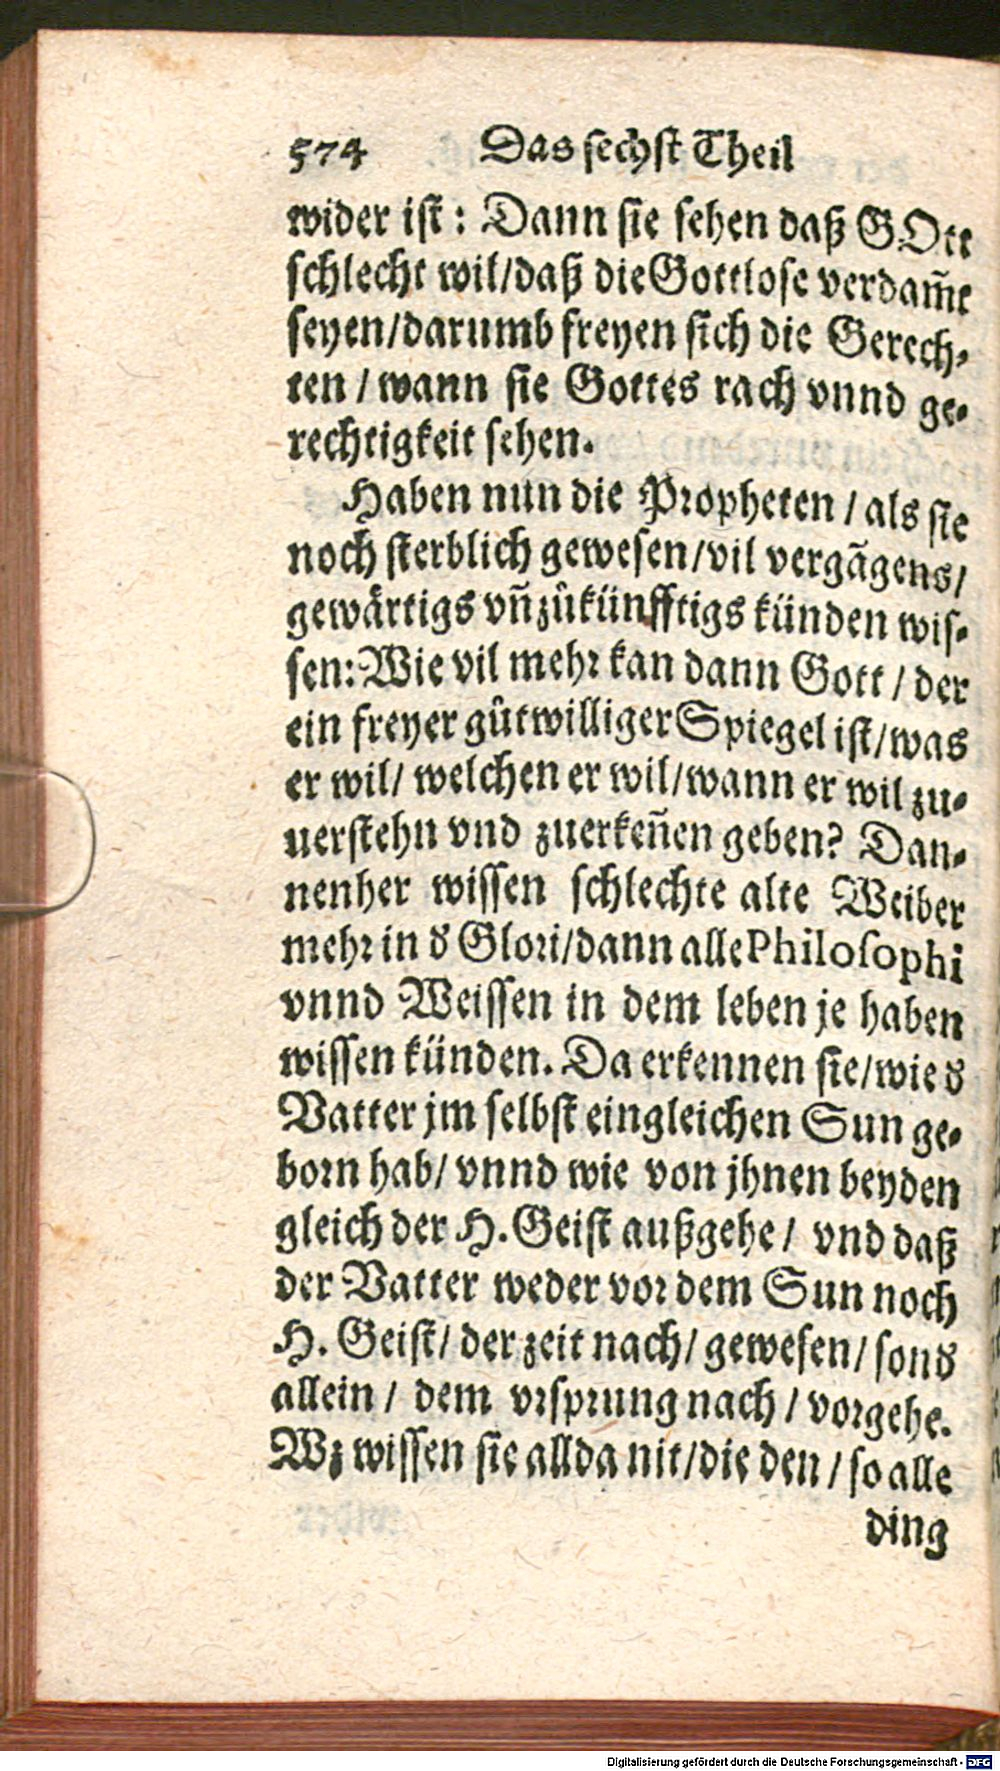 574 Das sechst Theil
wider ist: Dann sie sehen daß GOtt
schlecht wil/daß die Gottlose verdam̃t
seyen/darumb freyen sich die Gerech-
ten / wann sie Gottes rach vnnd ge-
rechtigkeit sehen.
Haben nun die Propheten / als sie
noch sterblich gewesen/vil vergãgens/
gewärtigs vñ zůkünfftigs künden wis-
sen: Wie vil mehr kan dann Gott / der
ein freyer gůtwilliger Spiegel ist/was
er wil/ welchen er wil/wann er wil zu-
uerstehn vnd zuerkeñen geben? Dan-
nenher wissen schlechte alte Weiber
mehr in d' Glori/dann alle Philosophi
vnnd Weissen in dem leben je haben
wissen künden. Da erkennen sie/wie d'
Vatter jm selbst eingleichen Sun ge-
born hab/ vnnd wie von jhnen beyden
gleich der H. Geist außgehe / vnd daß
der Vatter weder vor dem Sun noch
H. Geist/ der zeit nach/ gewesen/ sond'
allein / dem vrsprung nach / vorgehe.
Wz wissen sie allda nit/die den / so alle
ding
Digitalisierung gefördert durch die Deutsche Forschungsgemeinschaft - DFG